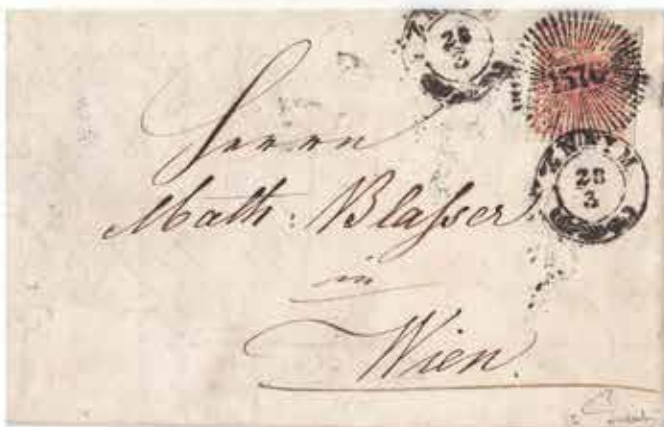 28
3
1370
ZNAYM
28
3
Herrn
Math: Blasser
in
Wien.